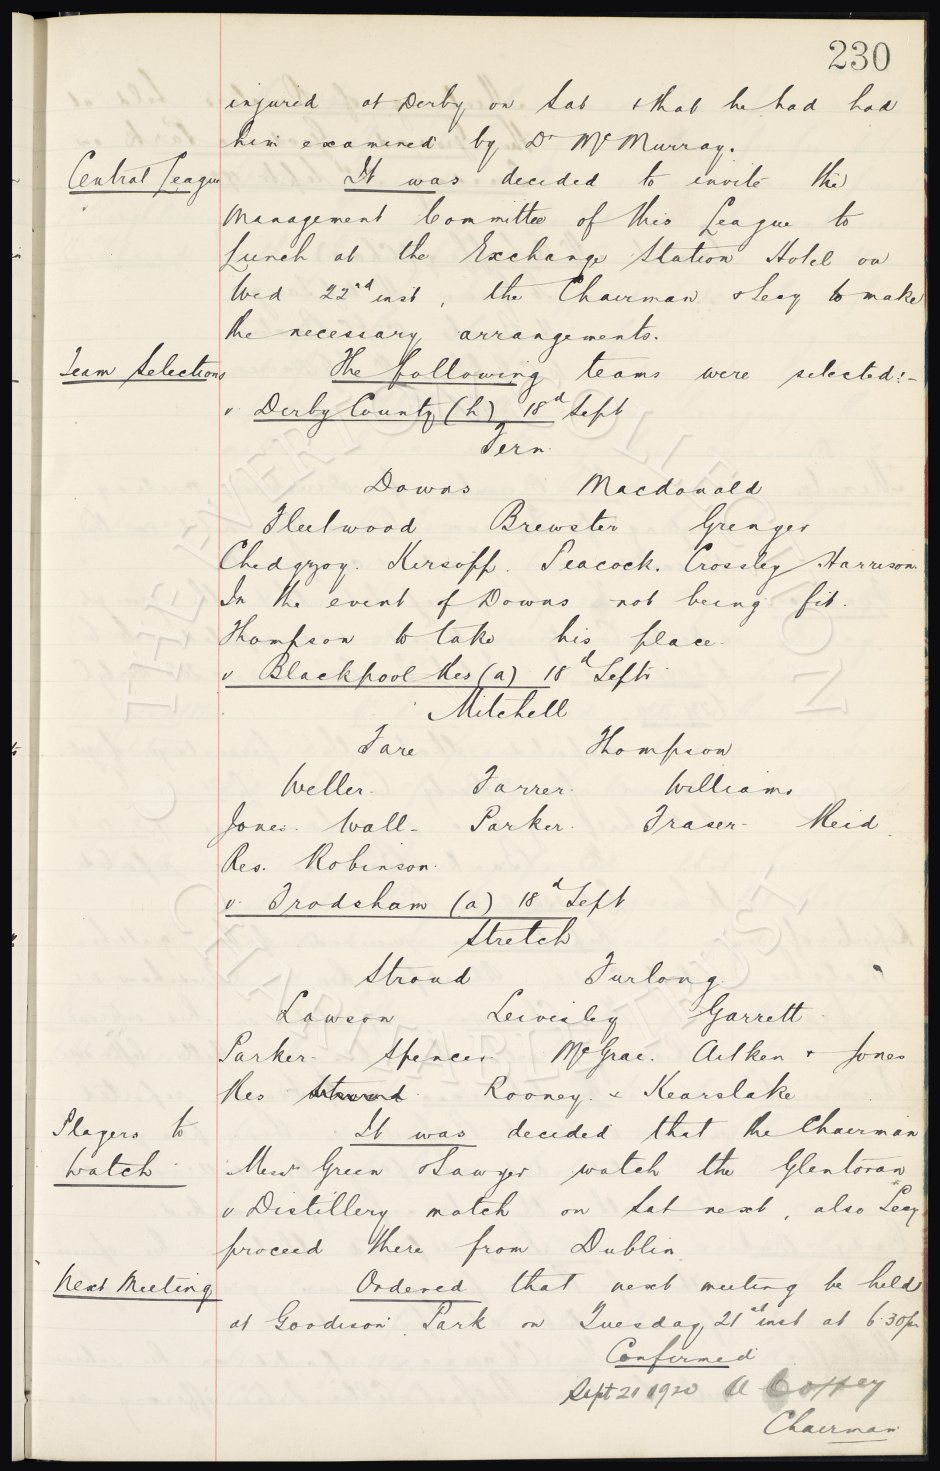 230
injured at Derby on Sat & that he had had
him examined by Dr McMurray.
Central League It was decided to invite the
Management Committee of this League to
Lunch at the Exchange Station Hotel on
Wed 22nd inst, the Chairman & Secy to make
the necessary arrangements.
Team Selections The following teams were selected:-
v Derby County (h) 18d Sept
Fern
Downs Macdonald
Fleetwood Brewster Grenyer
Chedgzoy. Kirsopp. Peacock. Crossley Harrison.
In the event of Downs not being fit.
Thompson to take his place.
v Blackpool Res (a) 18d Sept
Mitchell
Tare Thompson
Weller. Farrer. Williams
Jones. Wall. Parker. Fraser. Reid.
Res. Robinson.
v. Frodsham (a) 18d Sept
Stretch
Stroud Furlong.
Lawson Leivesley Garrett
Parker. Spencer McGrae. Aitken & Jones
Res Rooney. & Kearslake
Players to It was decided that the Chairman
Watch Messrs Green & Sawyer watch the Glentoran
v Distillery match on Sat next, also Secy
proceed there from Dublin
Next Meeting Ordered that next meeting be held
at Goodison Park on Tuesday 21st inst at 6.30pm
Confirmed
Sept 21 1920 A Coffey
Chairman
THE EVERTON COLLECTION
CHARITABLE TRUST